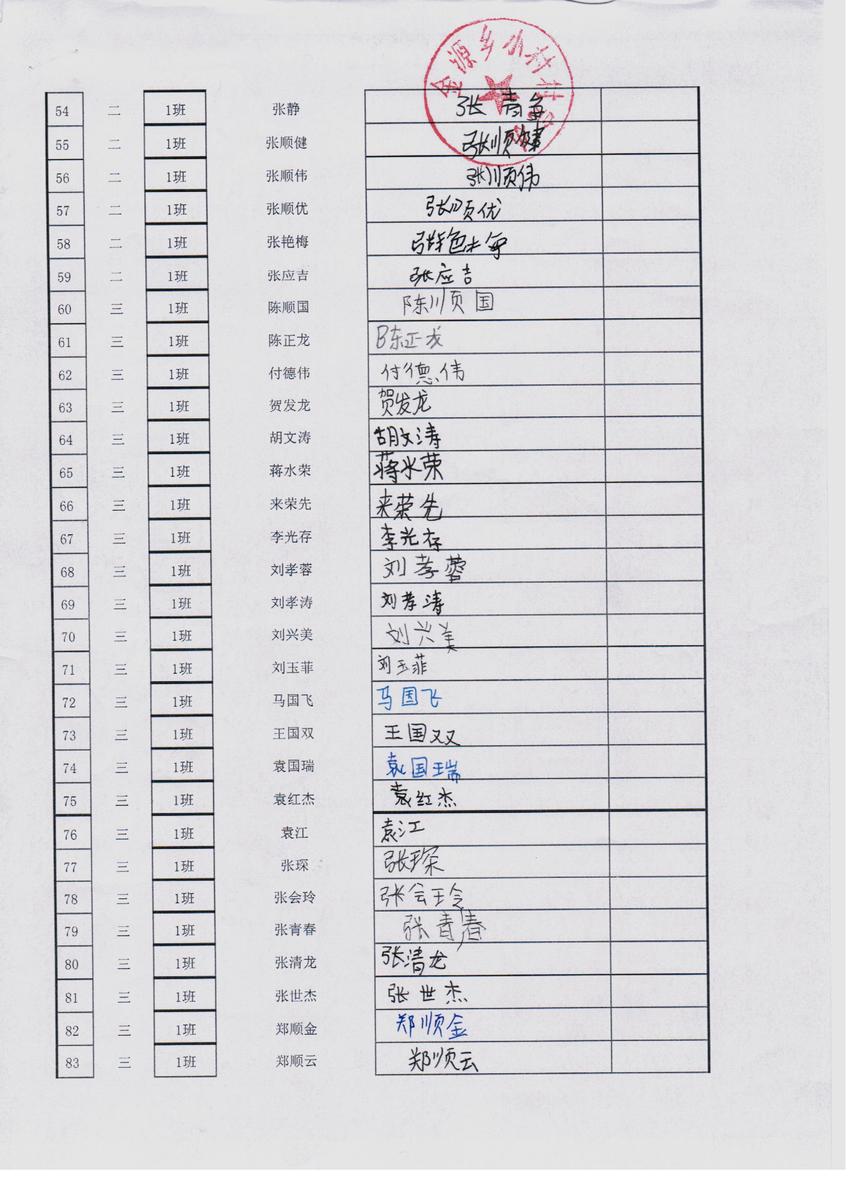 金源乡小村村
54 二 1班 张静 张青争
55 二 1班 张顺健 张顺健
56 二 1班 张顺伟 张顺伟
57 二 1班 张顺优 张顺优
58 二 1班 张艳梅 张艳梅
59 二 1班 张应吉 张应吉
60 三 1班 陈顺国 陈顺国
61 三 1班 陈正龙 陈正龙
62 三 1班 付德伟 付德伟
63 三 1班 贺发龙 贺发龙
64 三 1班 胡文涛 胡文涛
65 三 1班 蒋水荣 蒋水荣
66 三 1班 来荣先 来荣先
67 三 1班 李光存 李光存
68 三 1班 刘孝蓉 刘孝蓉
69 三 1班 刘孝涛 刘孝涛
70 三 1班 刘兴美 刘兴美
71 三 1班 刘玉菲 刘玉菲
72 三 1班 马国飞 马国飞
73 三 1班 王国双 王国双
74 三 1班 袁国瑞 袁国瑞
75 三 1班 袁红杰 袁红杰
76 三 1班 袁江 袁江
77 三 1班 张琛 张琛
78 三 1班 张会玲 张会玲
79 三 1班 张青春 张青春
80 三 1班 张清龙 张清龙
81 三 1班 张世杰 张世杰
82 三 1班 郑顺金 郑顺金
83 三 1班 郑顺云 郑顺云